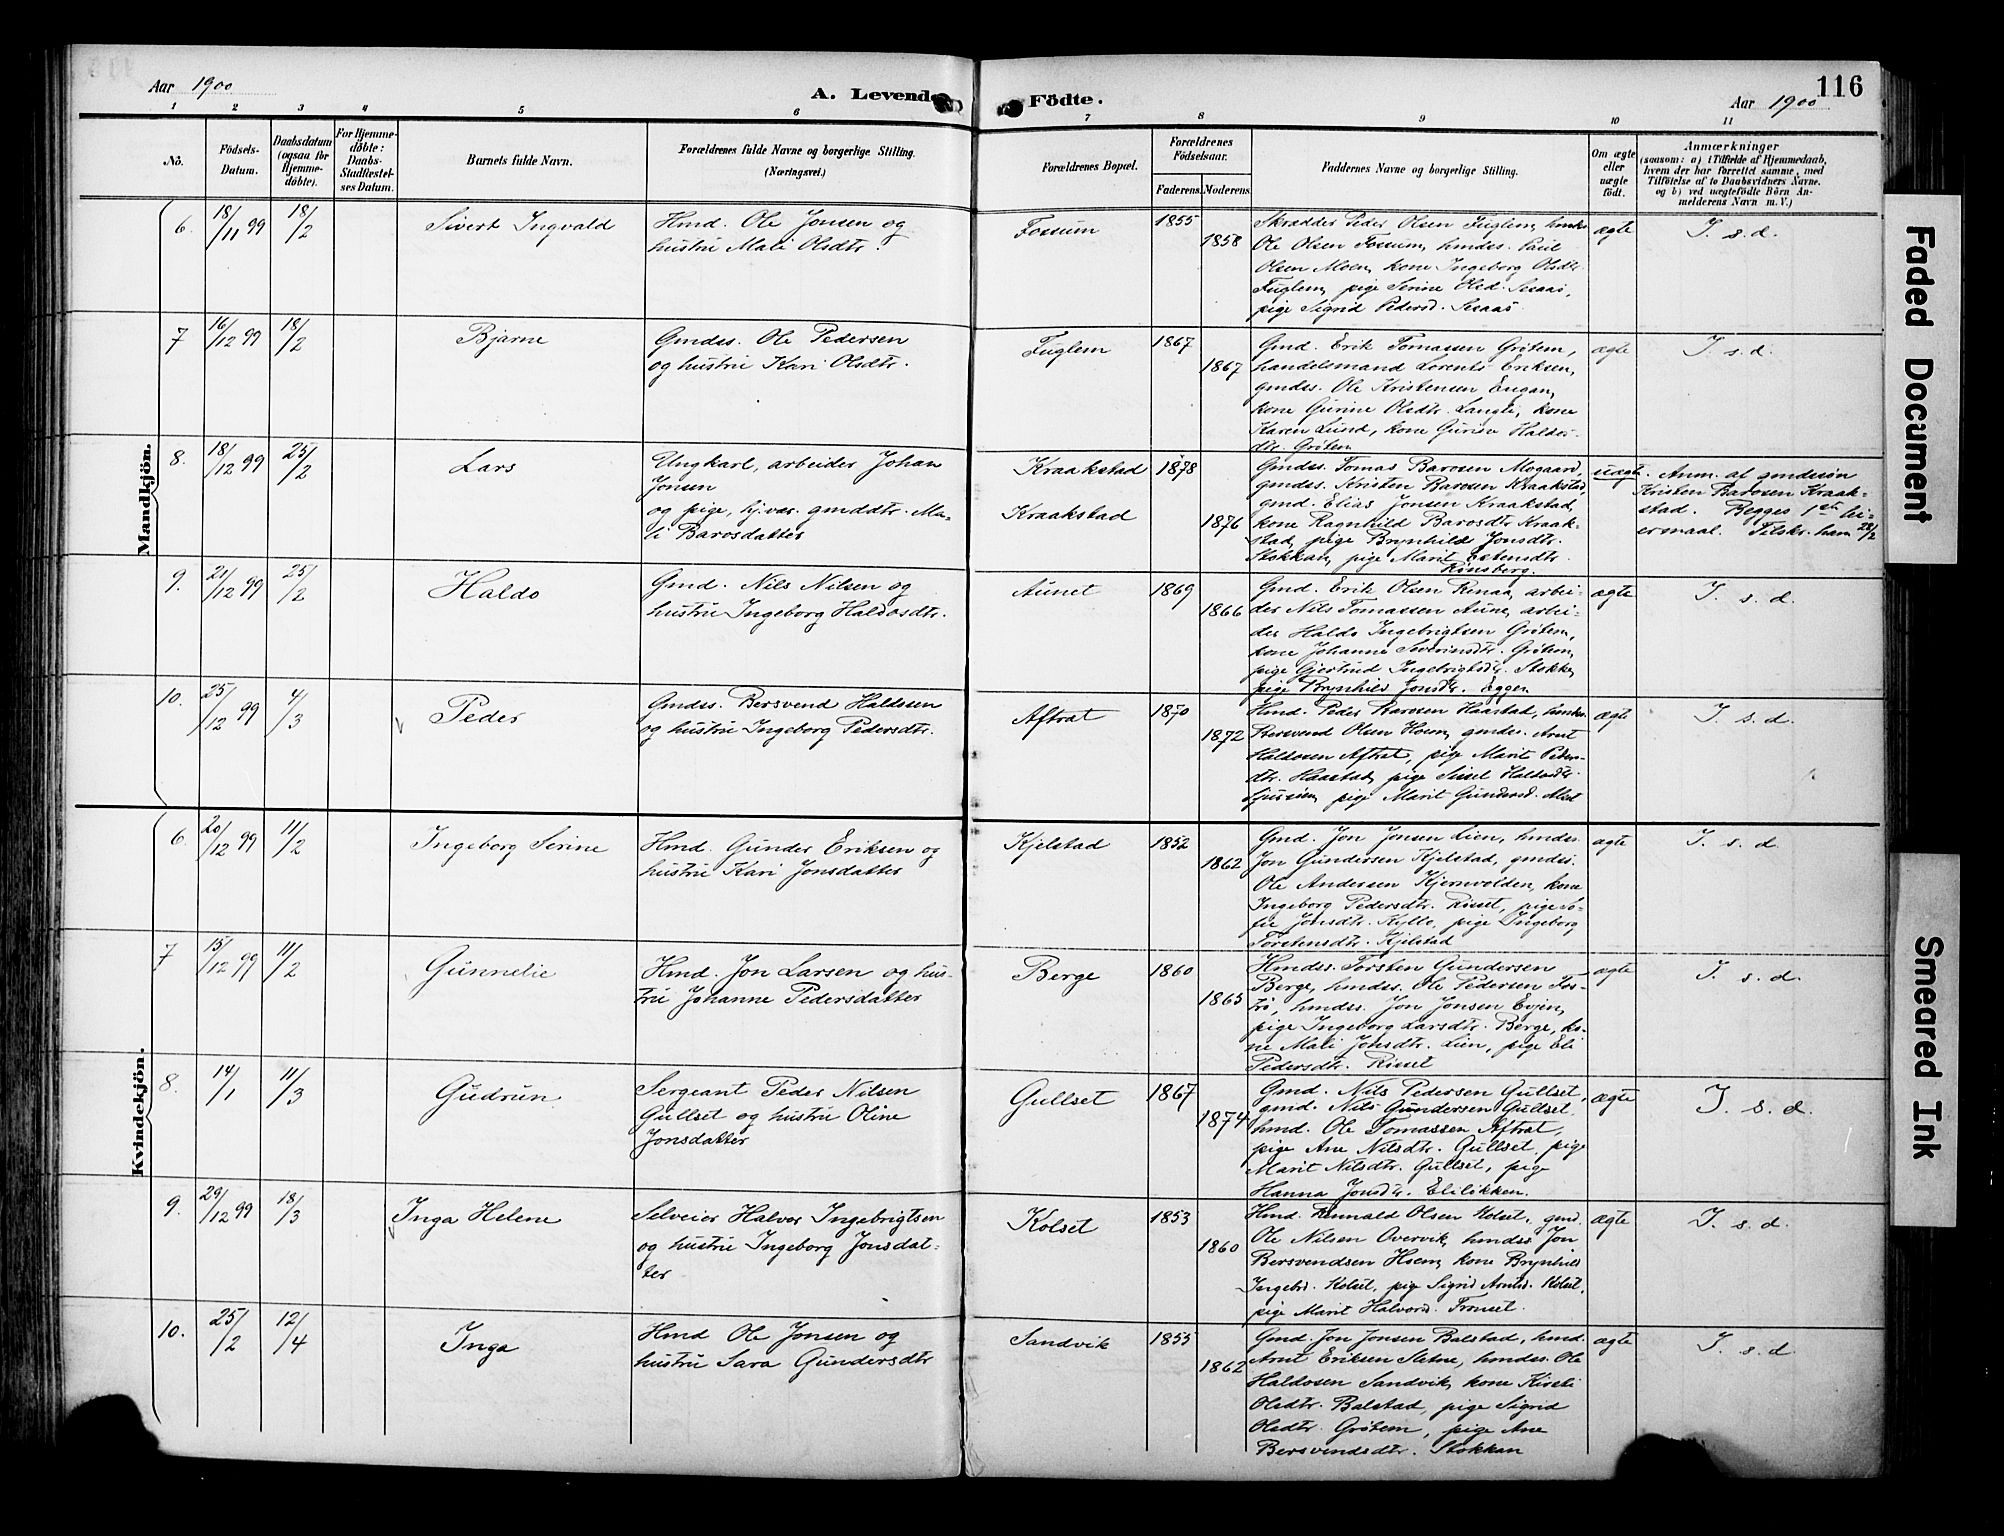 Aar 1900
A. Levende
Födte.
Aar 1900
116
1 2 3 4 5 6 7 8 9 10 11
No.
Födsels-
Datum.
Daabsdatum
(ogsaa for
Hjemme-
döbte).
For Hjemme-
döbte:
Daabs-
Stadfæstel-
ses Datum.
Barnets fulde Navn.
Forældrenes fulde Navne og borgerlige Stilling.
(Næringsvei.)
Forældrenes Bopæl.
Forældrenes
Födselsaar.
Faderens. Moderens.
Faddernes Navne og borgerlige Stilling.
Om ægte
eller
uægte
födt.
Anmærkninger
(saasom: a) i Tilfælde af Hjemmedaab,
hvem der har forrettet samme, med
Tilföielse af to Daabsvidners Navne.
og b) ved uægtefödte Börn An-
melderens Navn m. V.)
Mandkjön.
6. 18/11 99 18/2 Sivert Ingvald
Hmd. Ole Jonsen og
hustru Mali Olsdtr.
Fossum 1855 1858
Skrædder Peder Olsen Fuglem, hmds.
Ole Olsen Fossum, hmdes. Paul
Olsen Moen, kone Ingeborg Olsdtr.
Fuglem, pige Serine Olsd. Sesaas,
pige Sigrid Pedersd. Sesaas.
ægte I. s. d.
7 16/12 99 18/2 Bjarne
Gmdss. Ole Pedersen
og hustru Kari Olsdtr.
Fuglem 1867 1867
Gmd. Erik Tomassen Grötem,
handelsmand Lorents Eriksen,
gmdss. Ole Kristensen Engan,
kone Gurine Olsdtr. Langli, kone
Karen Lund, kone Guruo Haldos-
dtr. Gröten
ægte I. s. d.
8. 18/12 99 25/2 Lars
Ungkarl, arbeider Johan
Jonsen
og pige, hj.vær. gmddtr. Ma-
li Barosdatter
Kraakstad 1878
Kraakstad 1876
Gmdss. Tomas Barosen Mogaard,
gmdss. Kristen Barosen Kraakstad,
gmd. Elias Jonsen Kraakstad,
kone Ragnhild Barosdtr. Kraak-
stad, pige Brynhild Jonsdtr.
Stokkan, pige Marit Estensdtr.
Rönsberg.
uægte. Anm. af gmdesön
Kristen Barosen Kraak-
stad. Begges 1ste lei-
ermaal. Tilskr. ham 28/2
9. 21/12 99 25/2 Haldo
Gmd. Nils Nilsen og
hustru Ingeborg Haldosdtr.
Aunet 1869 1866
Gmd. Erik Olsen Renaa, arbei-
der Nils Tomassen Aune, arbei-
der Haldo Ingebrigtsen Grötem,
kone Johanne Severinsdtr. Grötem,
pige Gjertrud Ingebrigtsdtr. Stokke,
pige Brynhild Jonsdtr. Eggen
ægte I. s. d.
10. 25/12 99 4/3 Peder
Gmdss. Bersvend Haldosen
og hustru Ingeborg Pedersdtr.
Aftrat 1870 1872
Hmd. Peder Barosen Haastad, hmds.
Bersvend Olsen Hoem, gmdss. Arnt
Haldosen Aftrat, pige Marit Peders-
dtr. Haastad, pige Sissel Haldosdtr.
pige Marit
ægte I. s. d.
Kvindekjön.
6. 20/12 99 11/2 Ingeborg Serine
Hmd. Gunder Eriksen og
hustru Kari Jonsdatter
Kjelstad 1852 1862
Gmd. Jon Jonsen Lien, hmdes.
Jon Gundersen Kjelstad, gmdss.
Ole Andersen Kjernvolden, kone
Ingeborg Pedersdtr. Risset, pige So-
fie Jonsdtr. Kyllo, pige Ingeborg
Torstensdtr. Kjelstad
ægte I. s. d.
7 15/12 99 11/2 Gunnelie
Hmd. Jon Larsen og hus-
tru Johanne Pedersdatter
Berge 1860 1865
Hmdes. Torsten Gundersen
Berge, hmdss. Ole Pedersen Fos-
trö, hmdss. Jon Jonsen Evjen,
pige Ingeborg Larsdtr. Berge, ko-
ne Mali Jonsdtr. Lien, pige Eli
Pedersdtr. Risset
ægte I. s. d.
8. 14/1 11/3 Gudrun
Sergeant Peder Nilsen
Gullset og hustru Oline
Jonsdatter
Gullset 1867 1874
Gmd. Nils Pedersen Gullset,
gmd. Nils Gundersen Gullset,
hmd. Ole Tomassen Aftrat,
pige Ane Nilsdtr. Gullset, pige
Marit Nilsdtr. Gullset, pige
Hanna Jonsdtr. Elilökken.
ægte I. s. d.
9. 29/12 99 18/3 Inga Helene
Selveier Halvor Ingebrigtsen
og hustru Ingeborg Jonsdat-
ter
Kolset 1853 1860
Hmd. Olsen Kolset, gmd.
Ole Nilsen Overvik, hmdss. Jon
Bersvendsen Hoem, kone Brynhild
Ingebr. Kolset, pige Sigrid Arntsd. Kolset,
pige Marit Halvord. Fronset.
ægte I. s. d.
10. 25/2 12/4 Inga
Hmd Ole Jonsen og
hustru Sara Gundersdtr
Sandvik 1855 1862
Gmd. Jon Jonsen Balstad, hmd.
Arnt Eriksen Sletne, hmdss. Ole
Haldosen Sandvik, kone Kirsti
Olsdtr. Balstad, pige Sigrid
Olsdtr. Grötem, pige Ane
Bersvendsdtr. Stokkan
ægte I. s. d.
Faded Document
Smeared Ink